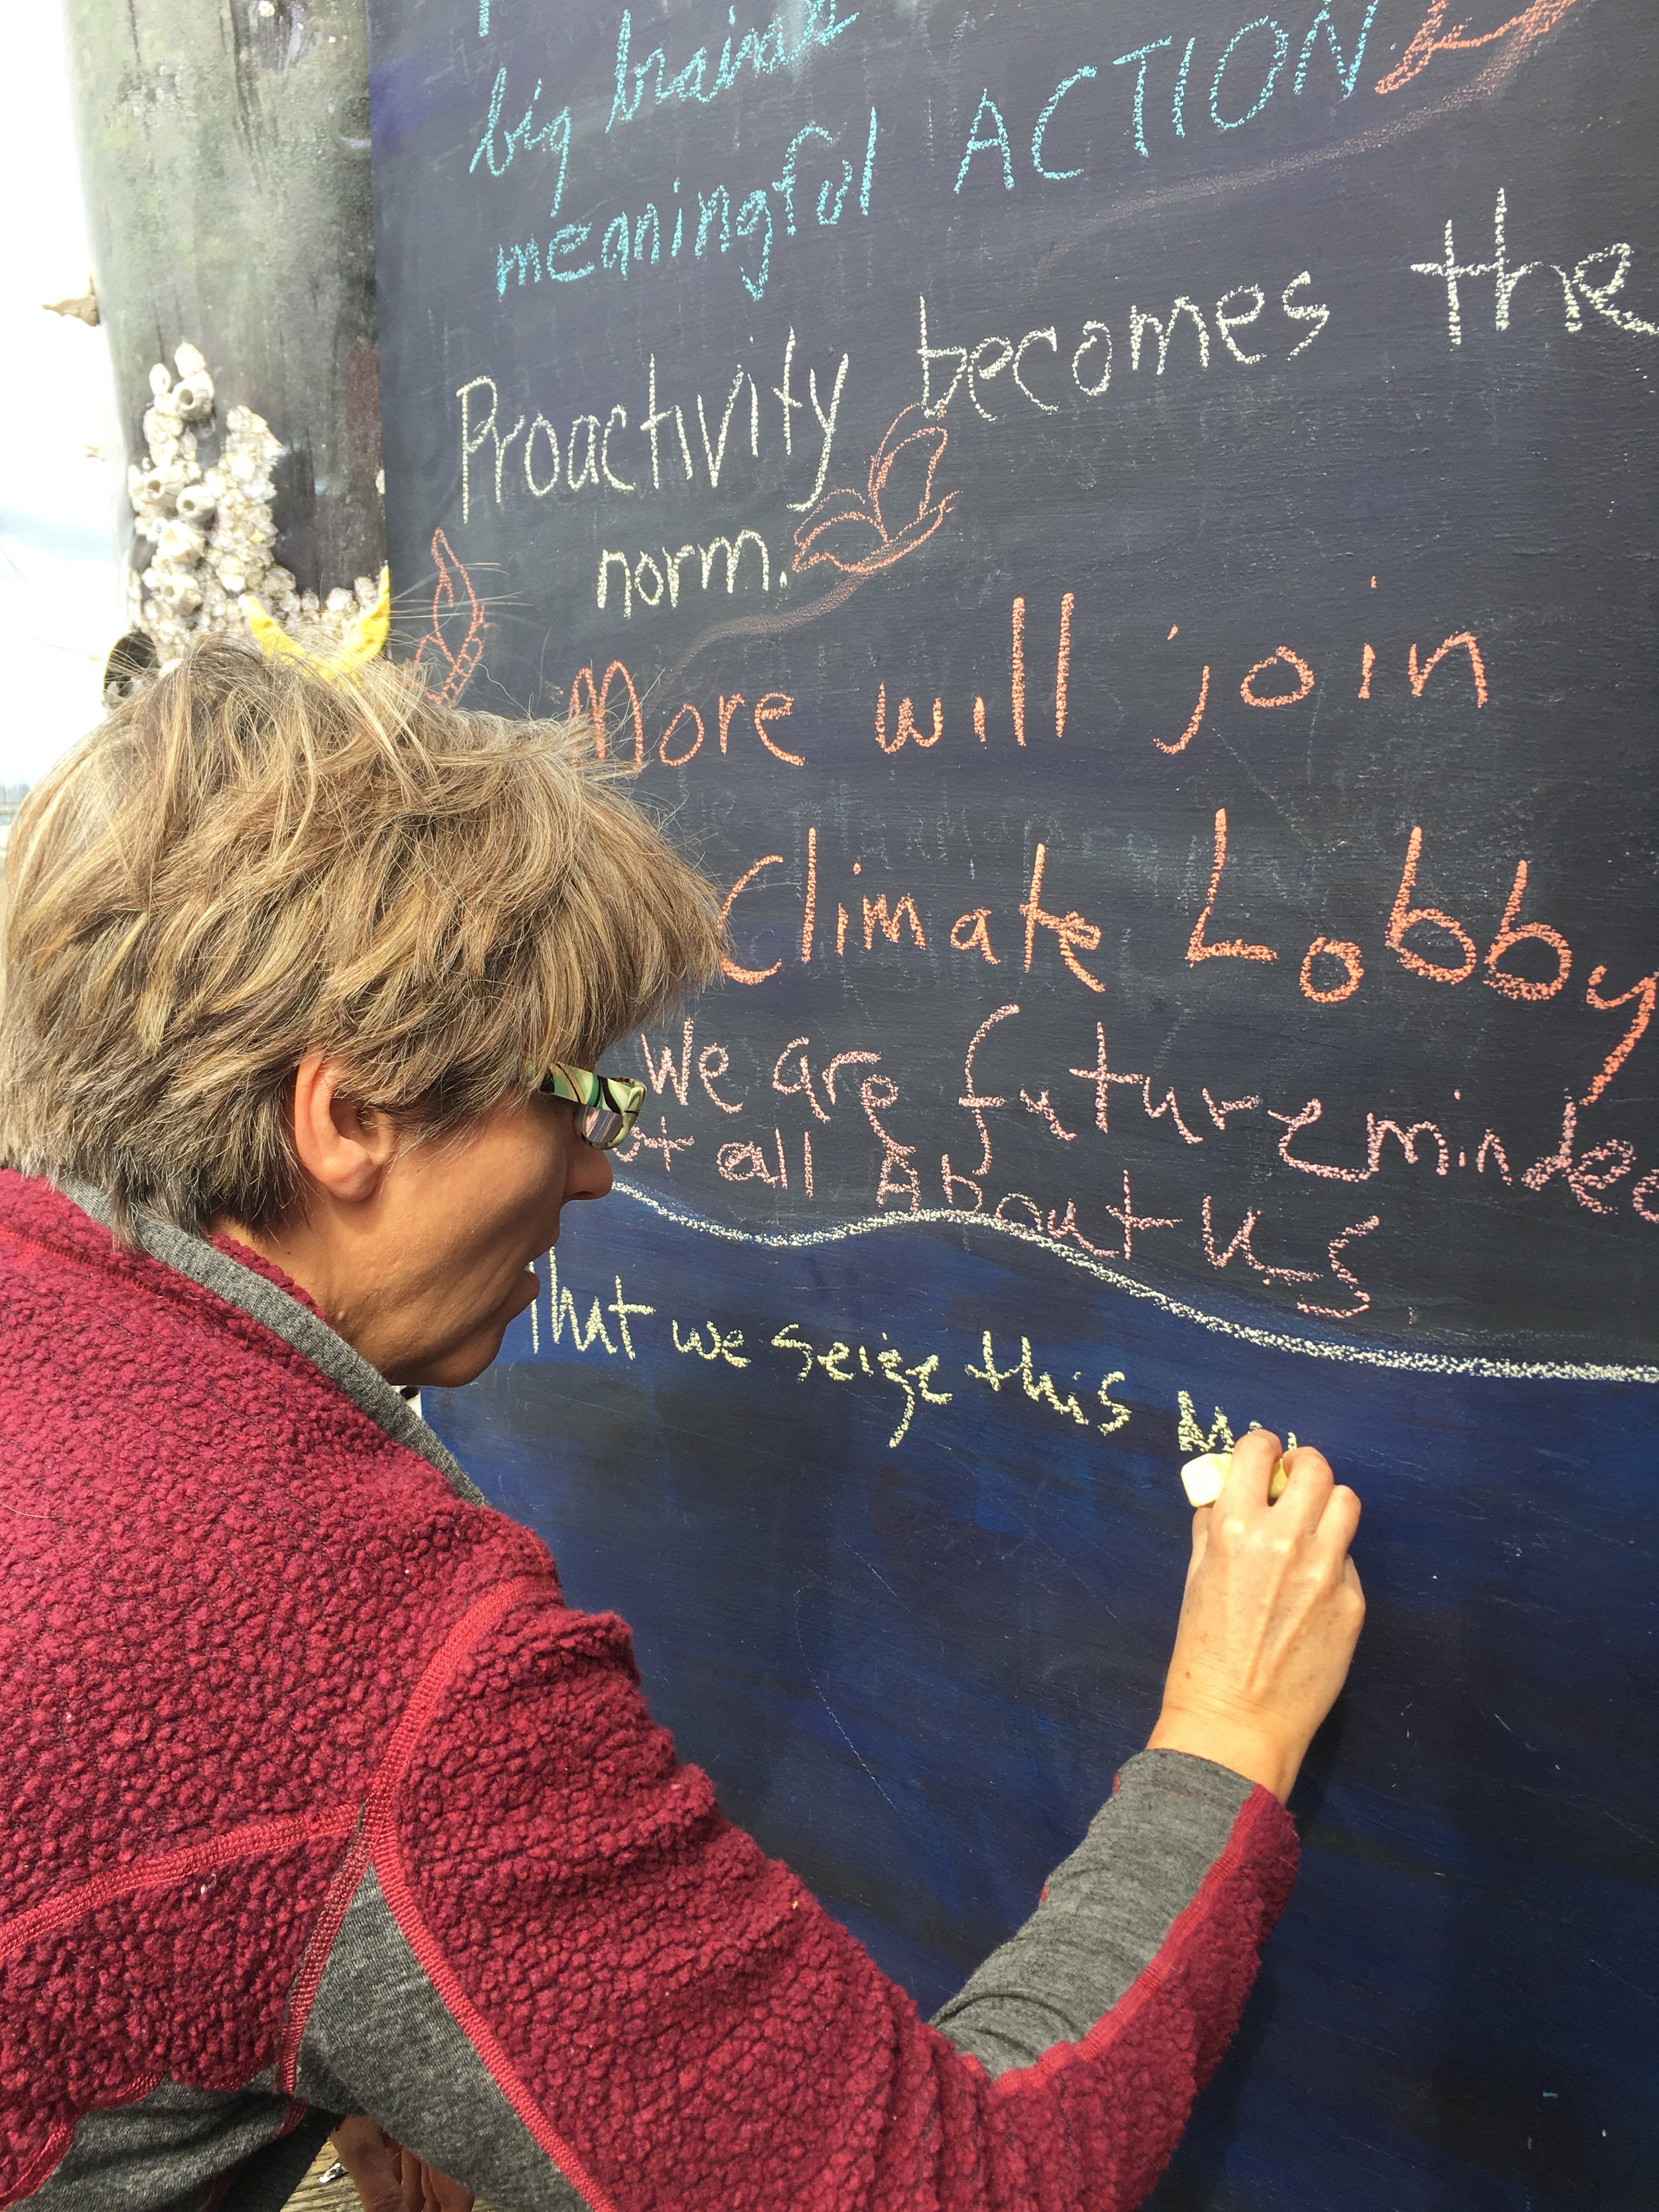 big brained
meaningful ACTION
Proactivity becomes the
norm.
More will join
Climate Lobby
We are future minded
all About us
That we seize this